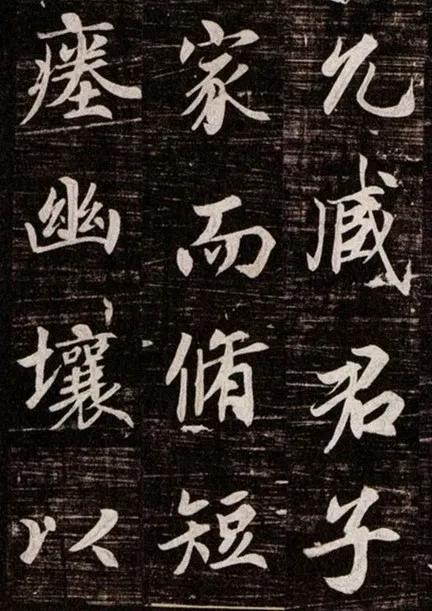 允臧君子
家而脩短
瘗幽壤以